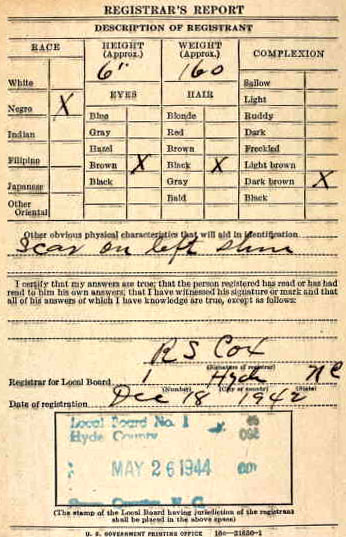 REGISTRAR'S REPORT
DESCRIPTION OF REGISTRANT
RACE HEIGHT (Approx.) WEIGHT (Approx.) COMPLEXION
6' 160
White Sallow
EYES HAIR Light
Negro X Blue Blonde Ruddy
Gray Red Dark
Indian Hazel Brown Freckled
Filipino Brown X Black X Light brown
Japanese Black Gray Dark brown X
Other Oriental Bald Black
Other obvious physical characteristics that will aid in identification
Scar on left shin
I certify that my answers are true; that the person registered has read or has had
read to him his own answers; that I have witnessed his signature or mark and that
all of his answers of which I have knowledge are true, except as follows:
R S Cox
(Signature of registrar)
Registrar for Local Board 1 Hyde N C
(Number) (City or county) (State)
Date of registration Dec 18 1942
Local Board No. 1
Hyde County
MAY 26 1944
N. C.
(The stamp of the Local Board having jurisdiction of the registrant
shall be placed in the above space)
U. S. GOVERNMENT PRINTING OFFICE 16—21630-1